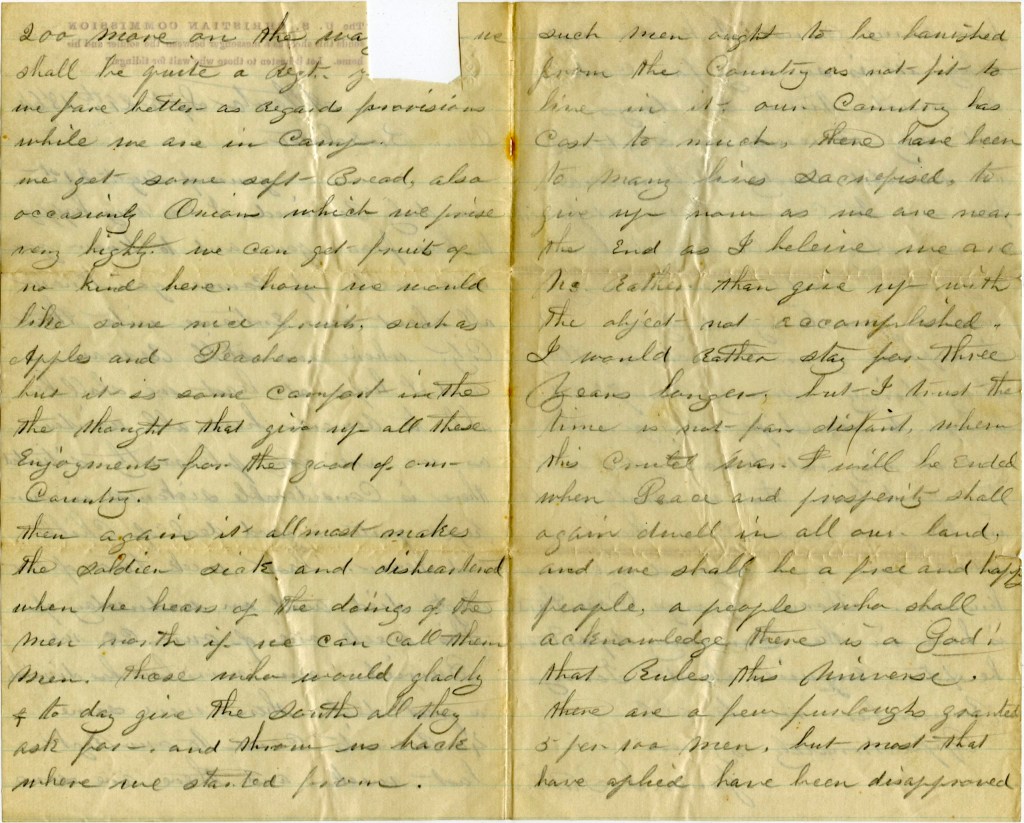 200 more on the way we
shall be quite a Regt.
we fare better as regards provisions
while we are in Camp.
we get some soft Bread, also
occasionly Onions which we prise
very highly. we can get fruit of
no kind here. how we would
like some nice fruit, such as
Apples and Peaches.
but it is some comfort in the
the thought that give up all these
Enjoyments for the good of our
Country.
then again it allmost makes
the soldier sick and disheartend
when he hears of the doings of the
men north if we can Call them
men. those who would gladly
to day give the South all they
ask for. and throw us back
where we started from.
such men ought to be banished
from the Country as not fit to
live in it our Country has
Cost to much, there have been
to many lives sacrefised, to
give up now as we are near
the End as I beleive we are
No Rather than give up with
the object not accomplished.
I would Rather stay for three
Years longer. but I trust the
time is not far distant, when
this Cruel War will be Ended
when Peace and prosperity shall
again dwell in all our land.
and we shall be a free and happy
people, a people who shall
acknowledge there is a God!
that Rules this Universe.
there are a few furloughs granted
5 per 100 men, but most that
have aplied have been disapproved